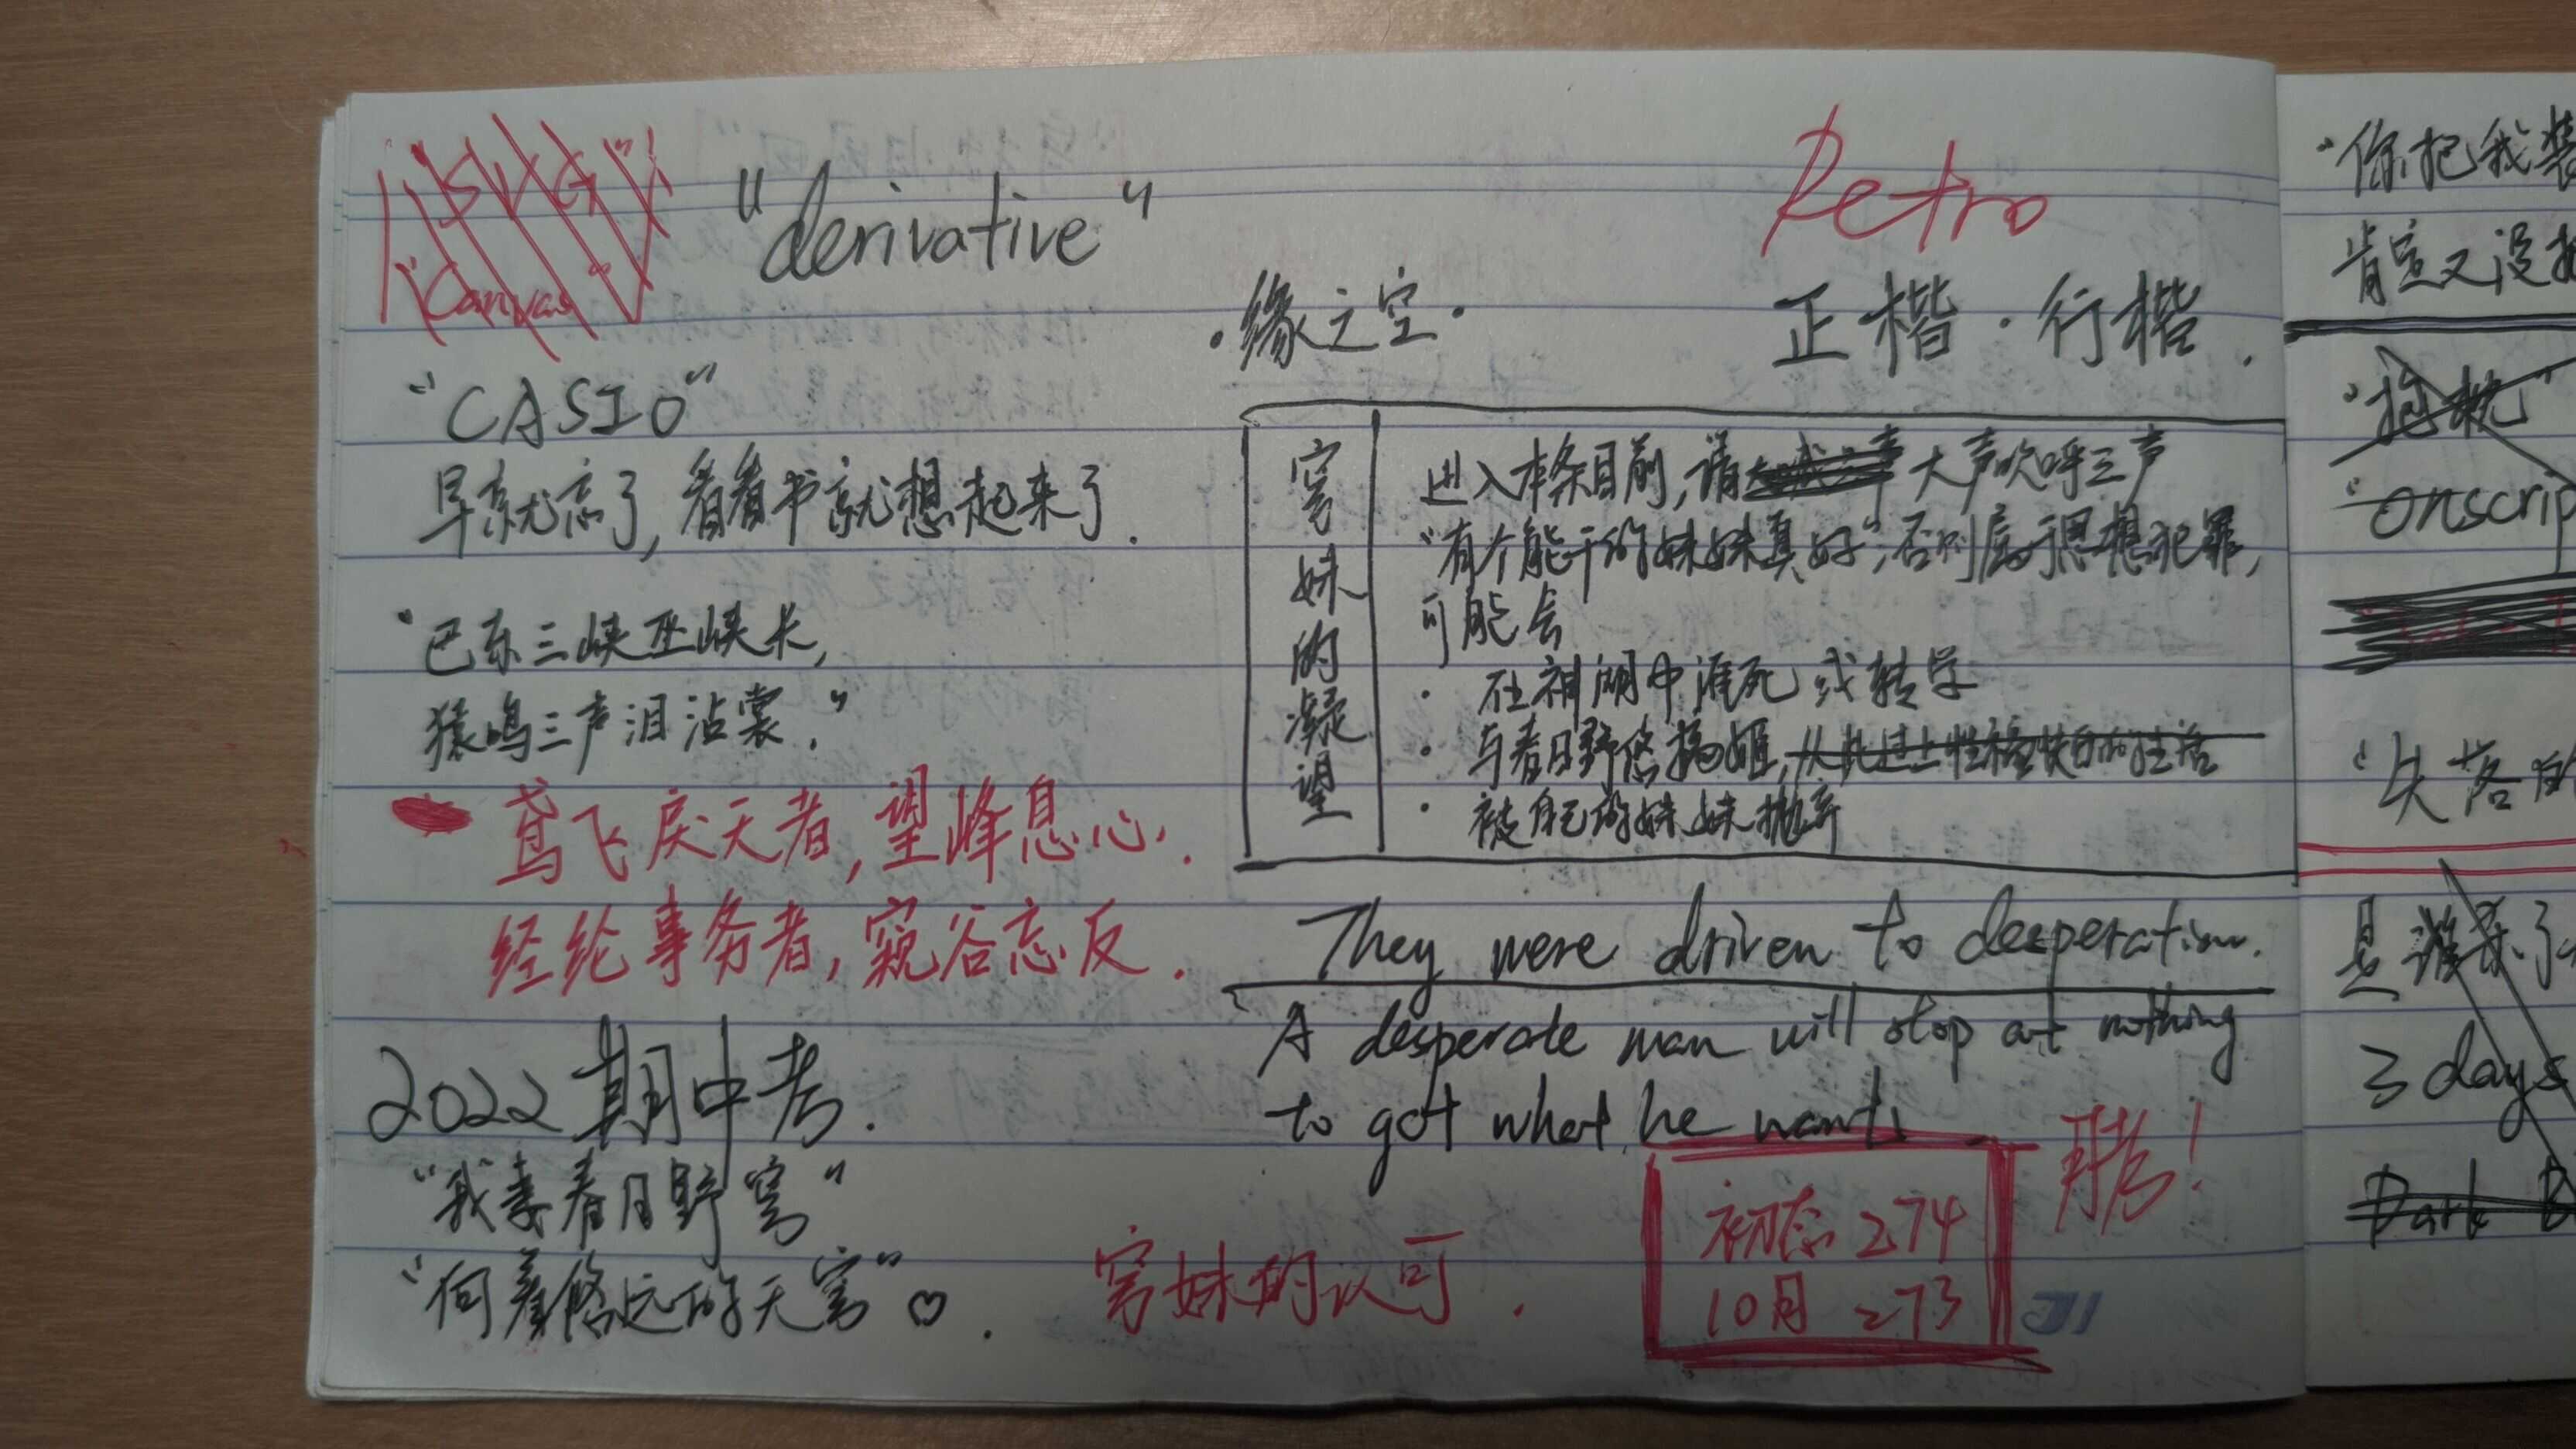 "SVG"
"Canvas"
"derivative"
Retro
·缘之空·
正楷·行楷.
"CASIO"
早就忘了,看看书就想起来了.
"巴东三峡巫峡长,
猿鸣三声泪沾裳."
鸢飞戾天者,望峰息心.
经纶事务者,窥谷忘反.
2022期中考.
"我妻春日野穹"
"向着悠远的天穹"♡.
穹妹的凝望
进入本条目前,请 大声欢呼三声
"有个能干的妹妹真好",否则属于思想犯罪,
可能会
· 在神湖中淹死 或转学
· 与春日野悠搞姬,从此过上性福快乐的生活
· 被自己的妹妹抛弃
They were driven to desperation.
A desperate man will stop at nothing
to get what he wants
穹妹的认可.
初态 274
10月 273
"你把我装
肯定又没
"抱枕"
"onscrip
"失落的
是谁杀了
3 days
Dark B